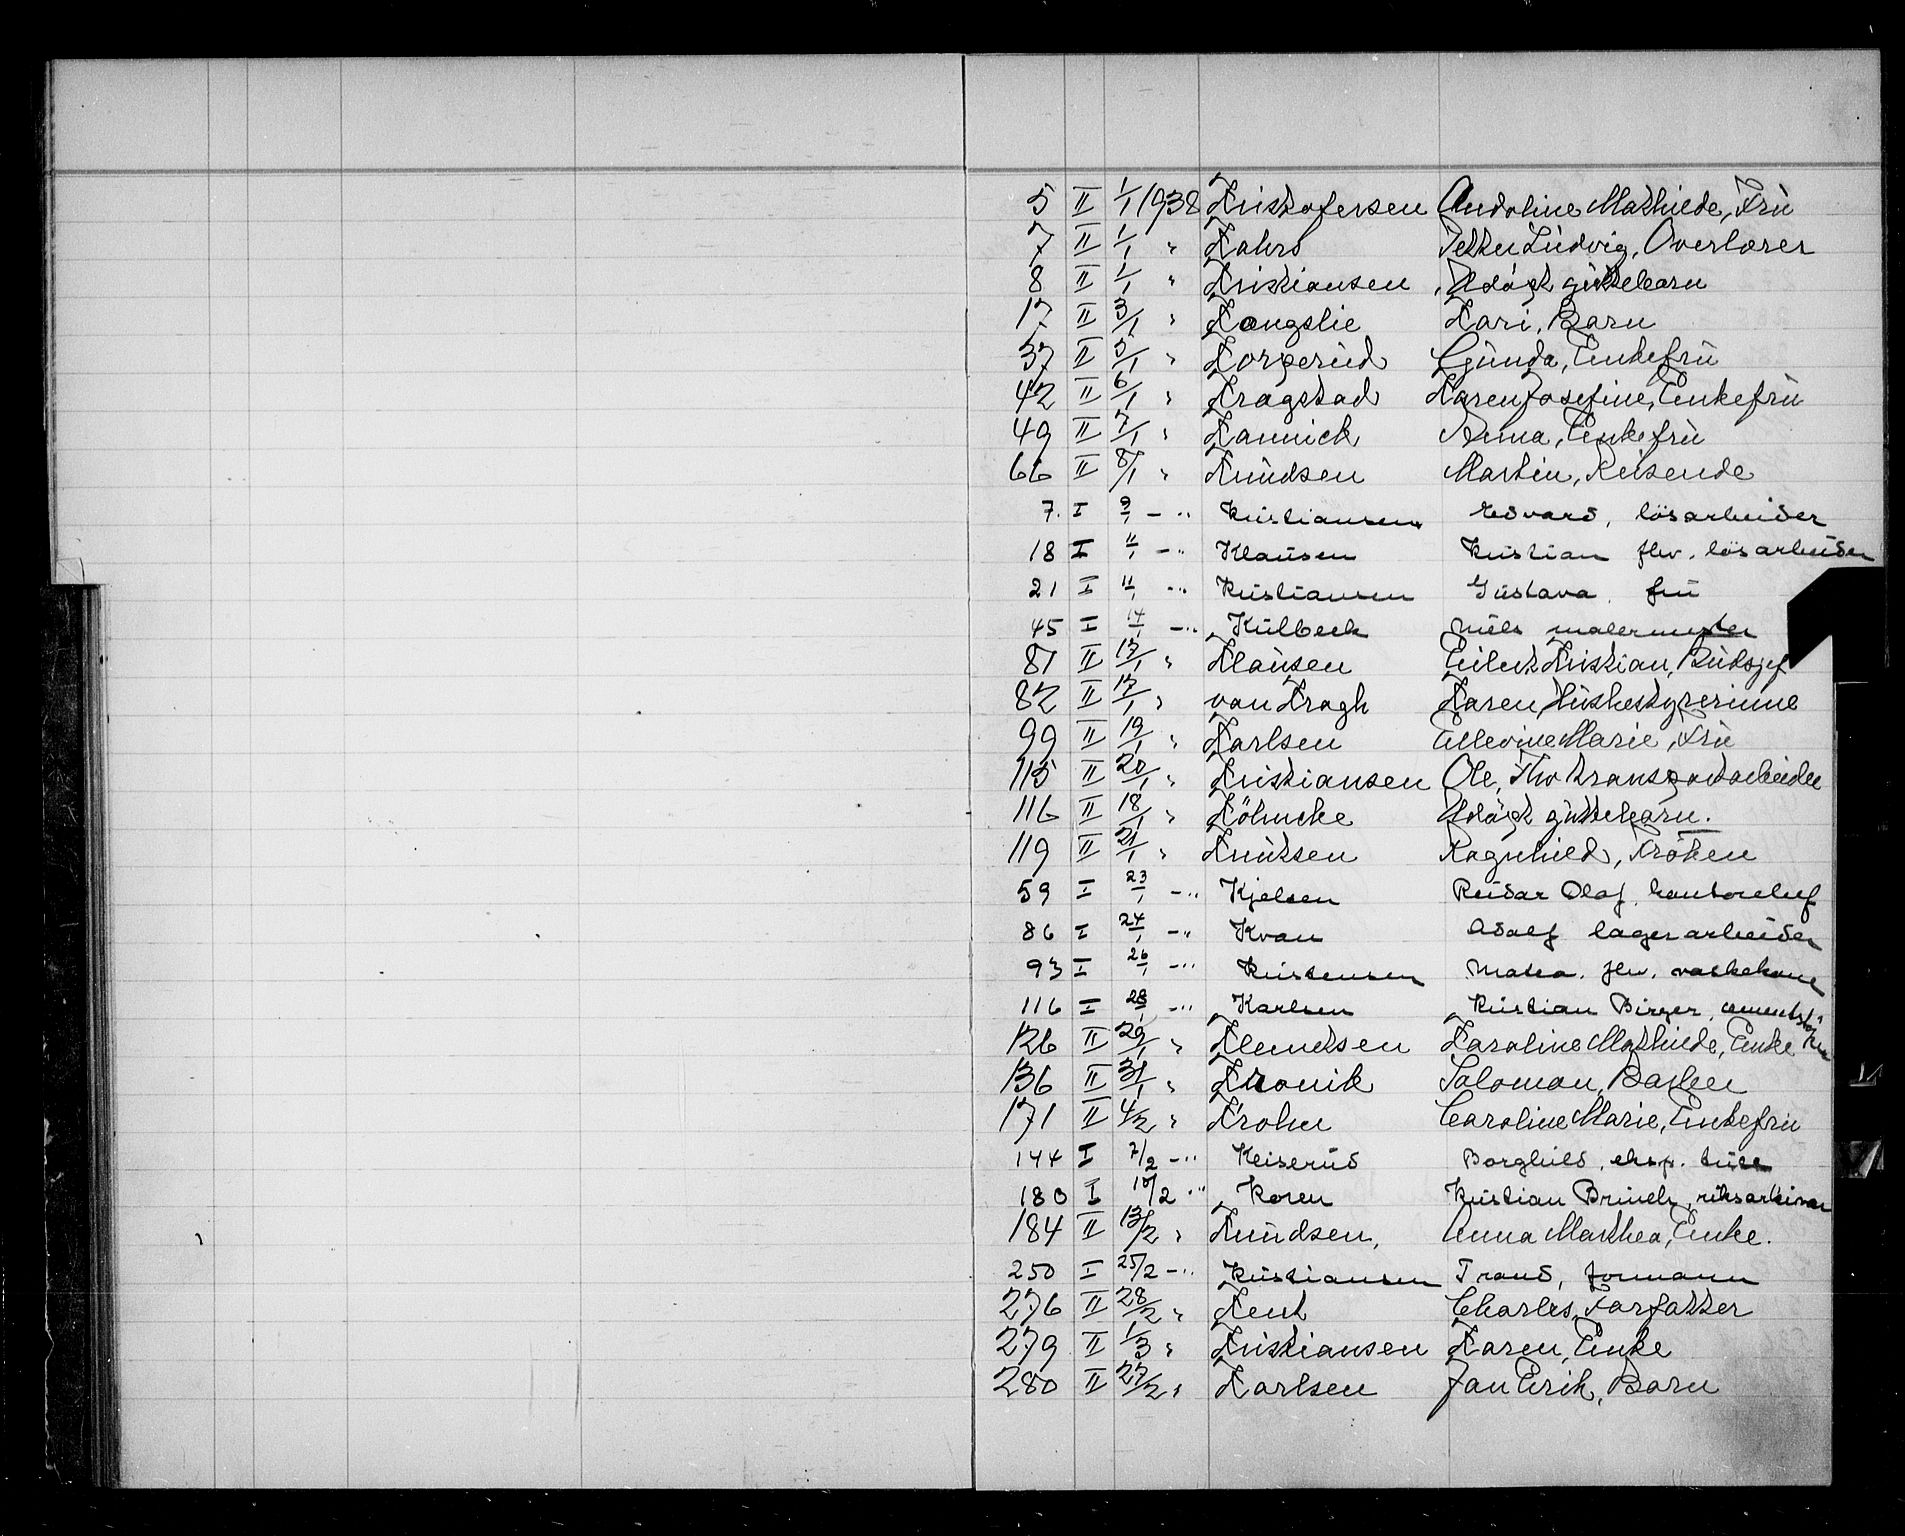 5 II 1/1 1938 Kristofersen Andoline Mathilde, Fru
7 II 1/1 " Kahrs Petter Ludvig, Overlærer
8 II 1/1 " Kristiansen, Udøpt guttebarn
17 II 3/1 " Kongslie Kari, Barn
37 II 5/1 " Korperud Gunda, Enkefru
42 II 6/1 " Kragstad Karen Josefine, Enkefru
49 II 7/1 " Kannick Anna, Enkefru
66 II 8/1 " Knudsen Martin, Reisende
7. I 9/1 - " Kristiansen Edvard, løsarbeider
18 I 11/1 - " Klausen Kristian fhv. løsarbeider
21 I 11/1 - " Kristiansen Gustava. fru
45 I 14/1 - " Kulbeck Niels malermester
81 II 17/1 " Klausen Eilert Kristian,
82 II 17/1 " van Kragh Karen, Husbestyrerinne
99 II 19/1 " Karlsen Ellevine Marie, Fru
115 II 20/1 " Kristiansen Ole, Fhv transportarbeider
116 II 18/1 " Köhncke Udøpt guttebarn.
119 II 21/1 " Knutsen Ragnhild, Frøken
59 I 23/1 - " Kjelsen Reidar Olaf, kontorchef
86 I 24/1 - " Kvan Adolf lagerarbeider
93 I 26/1 - " Kristensen Matea. fhv. vaskekone
116 I 28/1 - " Karlsen Kristian Birger, cementstøper
126 II 29/1 " Klemetsen Karoline Mathilde, Enke
136 II 31/1 " Kronik Salomon, Barber
171 II 4/2 " Krohn Caroline Marie, Enkefru
144 I 7/2 - " Keiserud Borghild, eksp. trise
180 I 10/2 " Koren Kristian Brinch, riksarkivar
184 II 13/2 " Knudsen, Anna Mathea, Enke.
250 I 25/2 - " Kristiansen Trond, formann
276 II 28/2 " Kent Charles, Forfatter
279 II 1/3 " Kristiansen Karen, Enke
280 II 27/2 " Karlsen Jan Erik, Barn